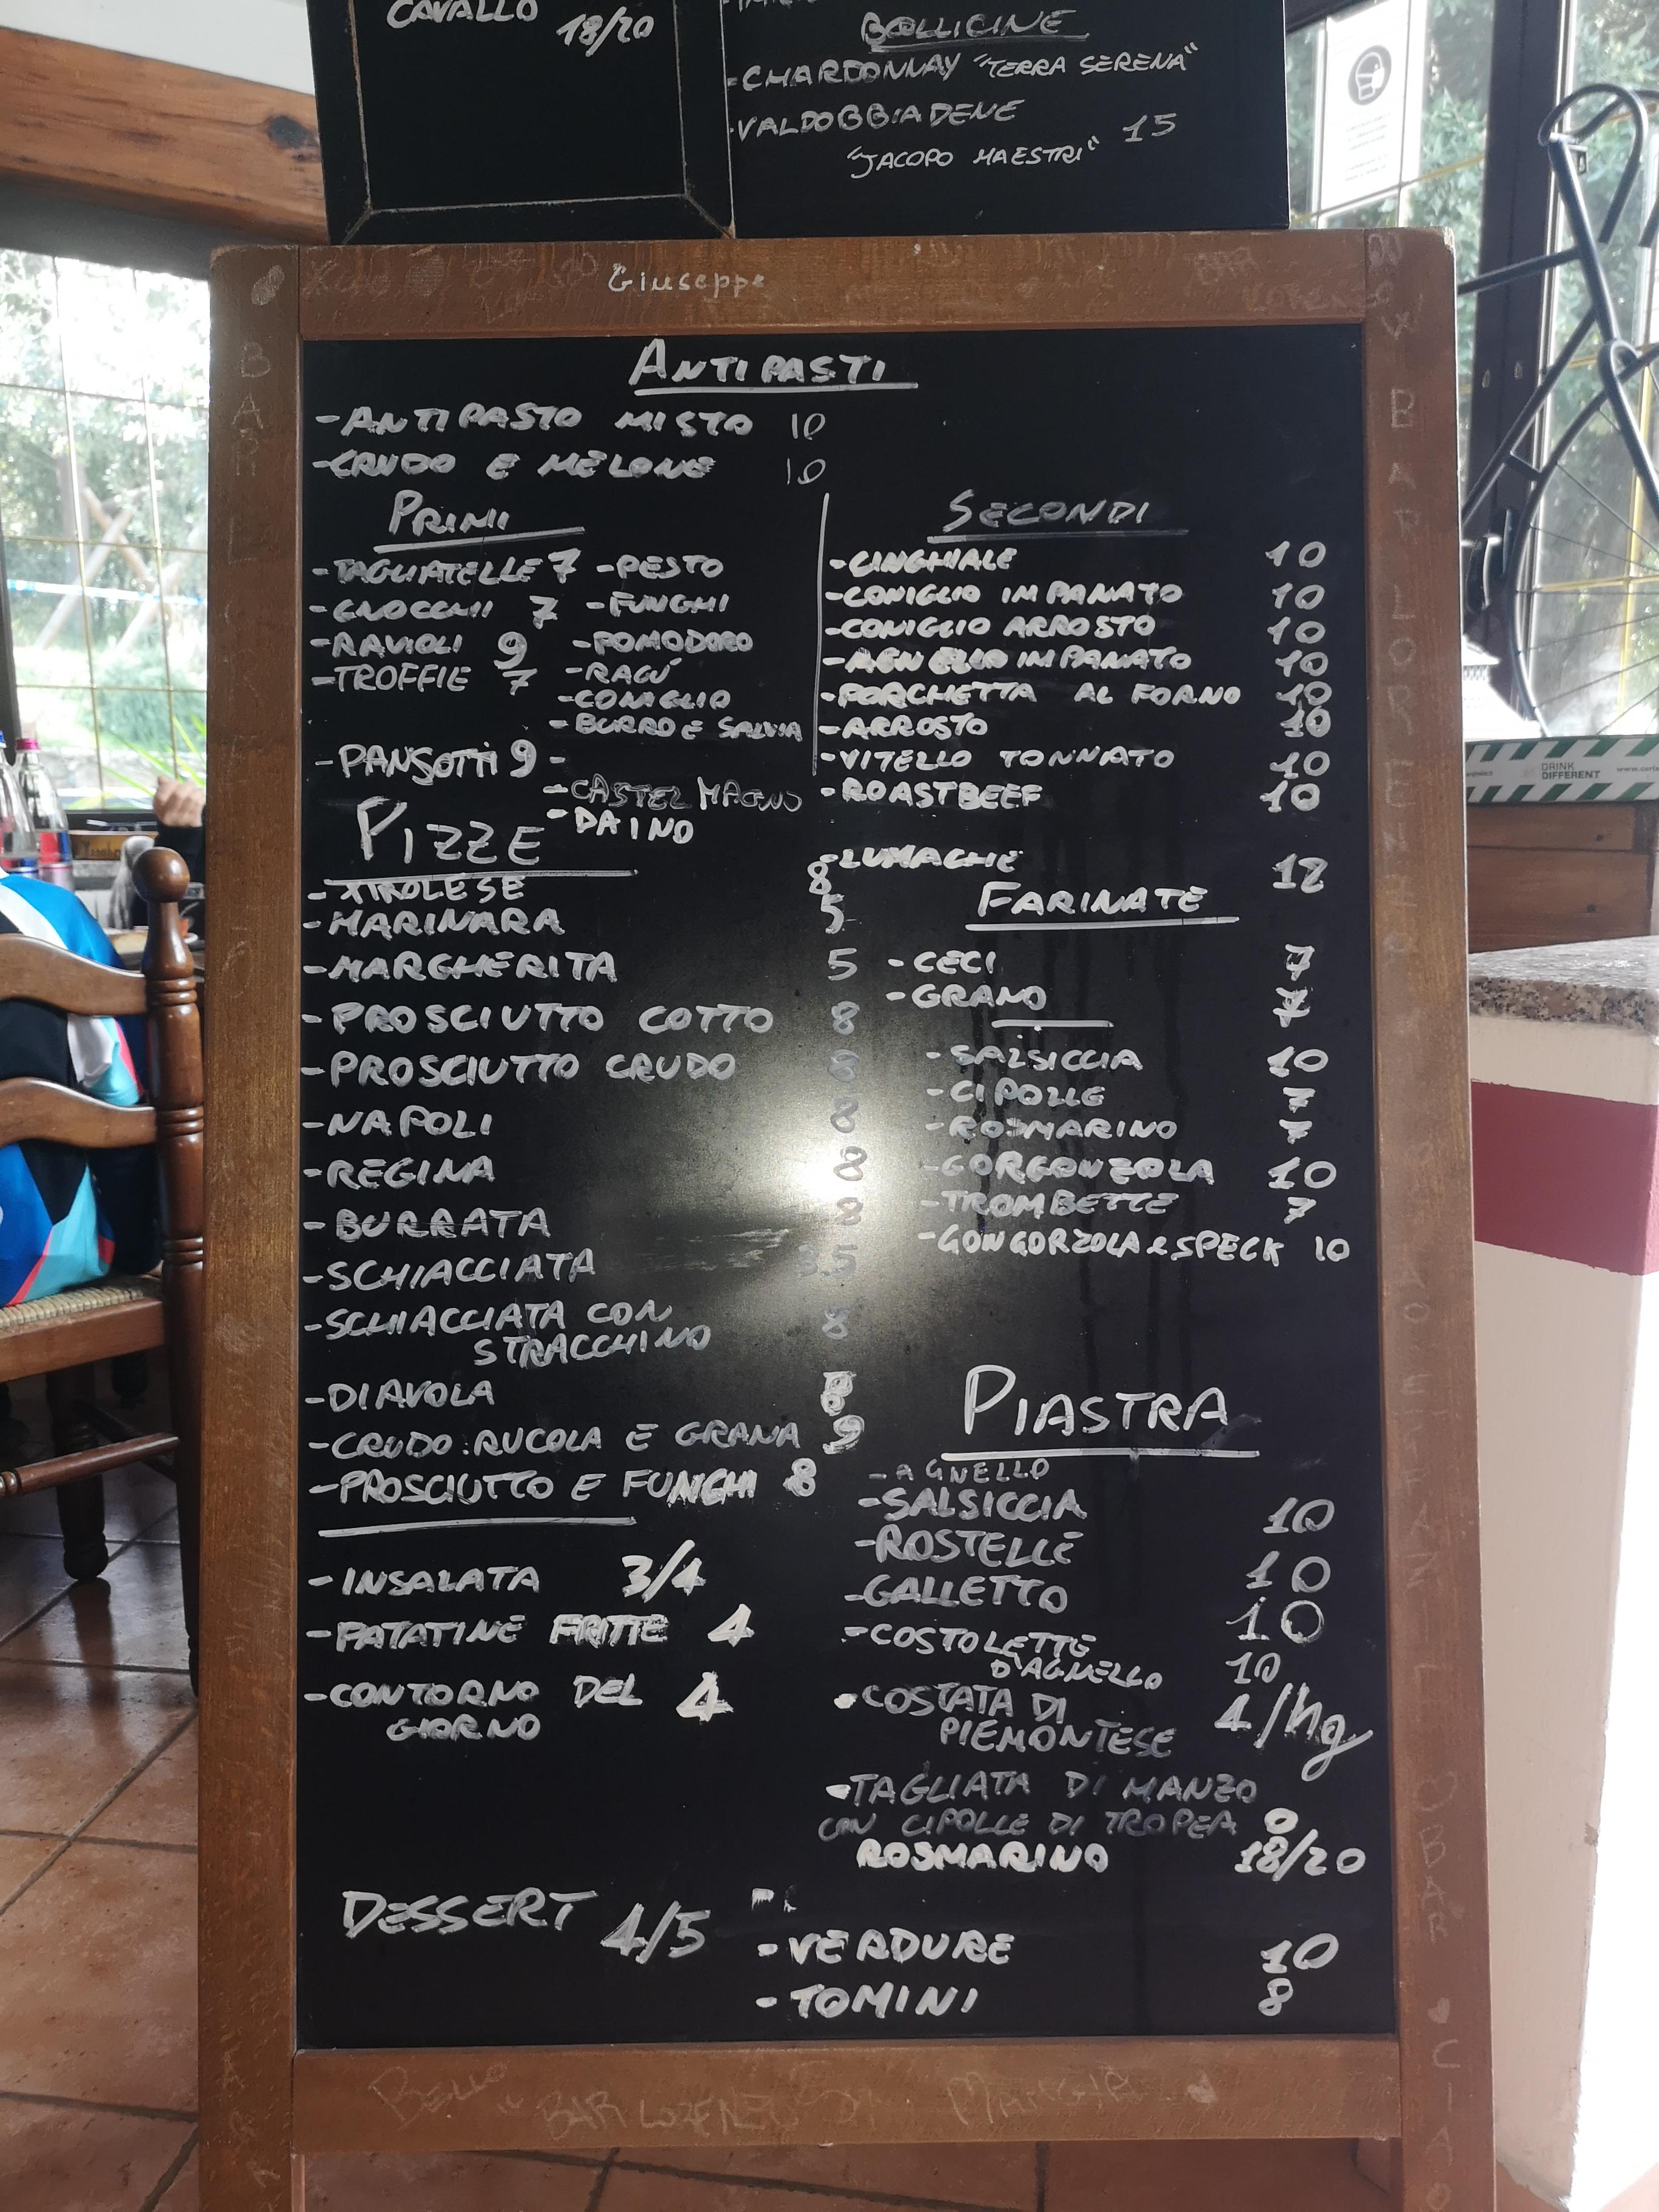 CAVALLO 18/20
BOLLICINE
-CHARDONNAY "TERRA SERENA"
-VALDOBBIADENE 15
"JACOPO MAESTRI"
Giuseppe
ANTIPASTI
-ANTIPASTO MISTO 10
-CRUDO E MELONE 10
PRIMI
-TAGLIATELLE 7 -PESTO
-GNOCCHI 7 -FUNGHI
-RAVIOLI 9 -POMODORO
-TROFFIE 7 -RAGÚ
-CONIGLIO
-BURRO E SALVIA
-PANSOTTI 9 -
-CASTEL MAGNO
-DAINO
SECONDI
-CINGHIALE 10
-CONIGLIO IMPANATO 10
-CONIGLIO ARROSTO 10
-AGNELLO IMPANATO 10
-PORCHETTA AL FORNO 10
-ARROSTO 10
-VITELLO TONNATO 10
-ROASTBEEF 10
-LUMACHE 12
PIZZE
-TIROLESE 8
-MARINARA 5
-MARGHERITA 5
-PROSCIUTTO COTTO 8
-PROSCIUTTO CRUDO 8
-NAPOLI 8
-REGINA 8
-BURRATA 8
-SCHIACCIATA 3.5
-SCHIACCIATA CON 8
STRACCHINO
-DIAVOLA 8
-CRUDO.RUCOLA E GRANA 9
-PROSCIUTTO E FUNGHI 8
-INSALATA 3/4
-PATATINE FRITTE 4
-CONTORNO DEL 4
GIORNO
DESSERT 4/5
FARINATE
-CECI 7
-GRANO 7
-SALSICCIA 10
-CIPOLLE 7
-ROSMARINO 7
-GORGONZOLA 10
-TROMBETTE 7
-GONGORZOLA e SPECK 10
PIASTRA
-AGNELLO
-SALSICCIA 10
-ROSTELLE 10
-GALLETTO 10
-COSTOLETTE
D'AGNELLO 10
-COSTATA DI 4/hg
PIEMONTESE
-TAGLIATA DI MANZO
CON CIPOLLE DI TROPEA O
ROSMARINO 18/20
-VERDURE 10
-TOMINI 8
DRINK
DIFFERENT
BAR
CIAO